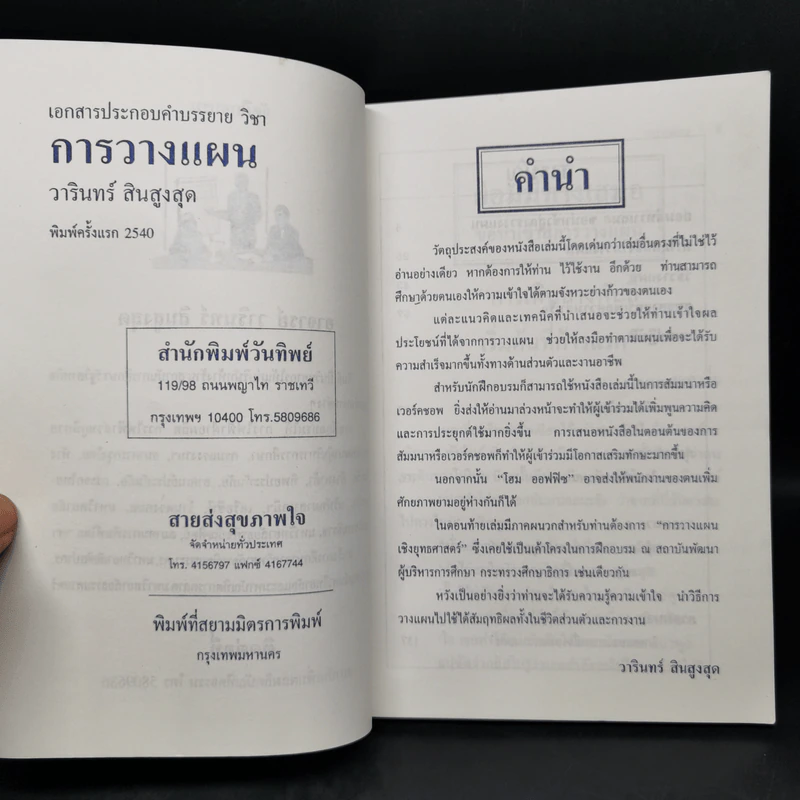 เอกสารประกอบคำบรรยาย วิชา
การวางแผน
วารินทร์ สินสูงสุด
พิมพ์ครั้งแรก 2540
สำนักพิมพ์วันทิพย์
119/98 ถนนพญาไท ราชเทวี
กรุงเทพฯ 10400 โทร.5809686
สายส่งสุขภาพใจ
จัดจำหน่ายทั่วประเทศ
โทร. 4156797 แฟกซ์ 4167744
พิมพ์ที่สยามมิตรการพิมพ์
กรุงเทพมหานคร
คำนำ
วัตถุประสงค์ของหนังสือเล่มนี้โดดเด่นกว่าเล่มอื่นตรงที่ไม่ใช่ไว้
อ่านอย่างเดียว หากต้องการให้ท่าน ไว้ใช้งาน อีกด้วย ท่านสามารถ
ศึกษาด้วยตนเองให้ความเข้าใจได้ตามจังหวะย่างก้าวของตนเอง
แต่ละแนวคิดและเทคนิคที่นำเสนอจะช่วยให้ท่านเข้าใจผล
ประโยชน์ที่ได้จากการวางแผน ช่วยให้ลงมือทำตามแผนเพื่อจะได้รับ
ความสำเร็จมากขึ้นทั้งทางด้านส่วนตัวและงานอาชีพ
สำหรับนักฝึกอบรมก็สามารถใช้หนังสือเล่มนี้ในการสัมมนาหรือ
เวอร์คชอพ ยิ่งส่งให้อ่านมาล่วงหน้าจะทำให้ผู้เข้าร่วมได้เพิ่มพูนความคิด
และการประยุกต์ใช้มากยิ่งขึ้น การเสนอหนังสือในตอนต้นของการ
สัมมนาหรือเวอร์คชอพก็ทำให้ผู้เข้าร่วมมีโอกาสเสริมทักษะมากขึ้น
นอกจากนั้น "โฮม ออฟฟิซ" อาจส่งให้พนักงานของตนเพิ่ม
ศักยภาพยามอยู่ห่างกันก็ได้
ในตอนท้ายเล่มมีภาคผนวกสำหรับท่านต้องการ "การวางแผน
เชิงยุทธศาสตร์" ซึ่งเคยใช้เป็นเค้าโครงในการฝึกอบรม ณ สถาบันพัฒนา
ผู้บริหารการศึกษา กระทรวงศึกษาธิการ เช่นเดียวกัน
หวังเป็นอย่างยิ่งว่าท่านจะได้รับความรู้ความเข้าใจ นำวิธีการ
วางแผนไปใช้ได้สัมฤทธิผลทั้งในชีวิตส่วนตัวและการงาน
วารินทร์ สินสูงสุด